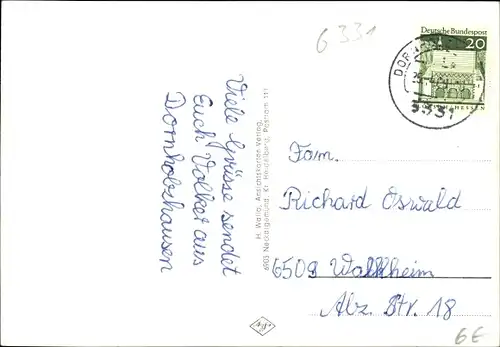 6331
Deutsche Bundespost
20
HESSEN
6331
Viele Grüsse sendet
Euch Volker aus
Dornholzhausen
H. Walla, Ansichtskarten-Verlag,
6903 Neckargemünd, Kr. Heidelberg, Postfach 111
Fam.
Richard Oswald
6509 Wahlheim
Alz. Str. 18
6E